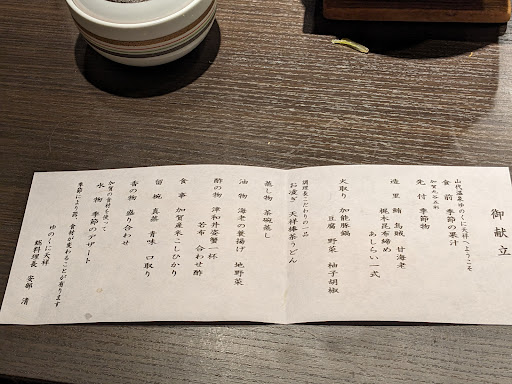 御献立
山代温泉ゆのくに天祥へようこそ
食前 季節の果汁
加賀丸谷五郎
先付 季節物
造里 鮪 烏賊 甘海老
梶木昆布締め
あしらい一式
火取り 加能豚鍋
豆腐 野菜 柚子胡椒
調理長こだわりの一品
お凌ぎ 天祥棒茶うどん
蒸し物 茶碗蒸し
油物 海老の養揚げ 地野菜
酢の物 津和井姿蟹一杯
若布 合わせ酢
食事 加賀産米こしひかり
留椀 真蒸 青味 口取り
香の物 盛り合わせ
加賀の食材を使って
水物 季節のデザート
季節により器、食材が変ることが有ります
ゆのくに天祥
総料理長 安部 清